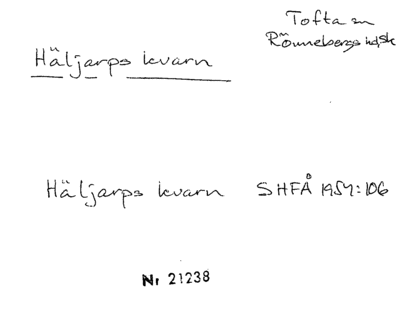 Tofta sn
Rönnebergs hd, Sk
Häljarps kvarn
Häljarps kvarn SHFÅ 1957:106
Nr 21238